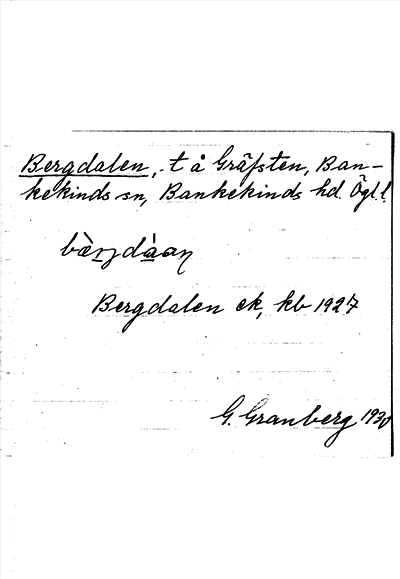 Bergdalen, t å Gräfsten, Ban-
kekinds sn, Bankekinds hd. Ögl.l.
Bergdalen ek, kb 1927
G. Granberg 1930